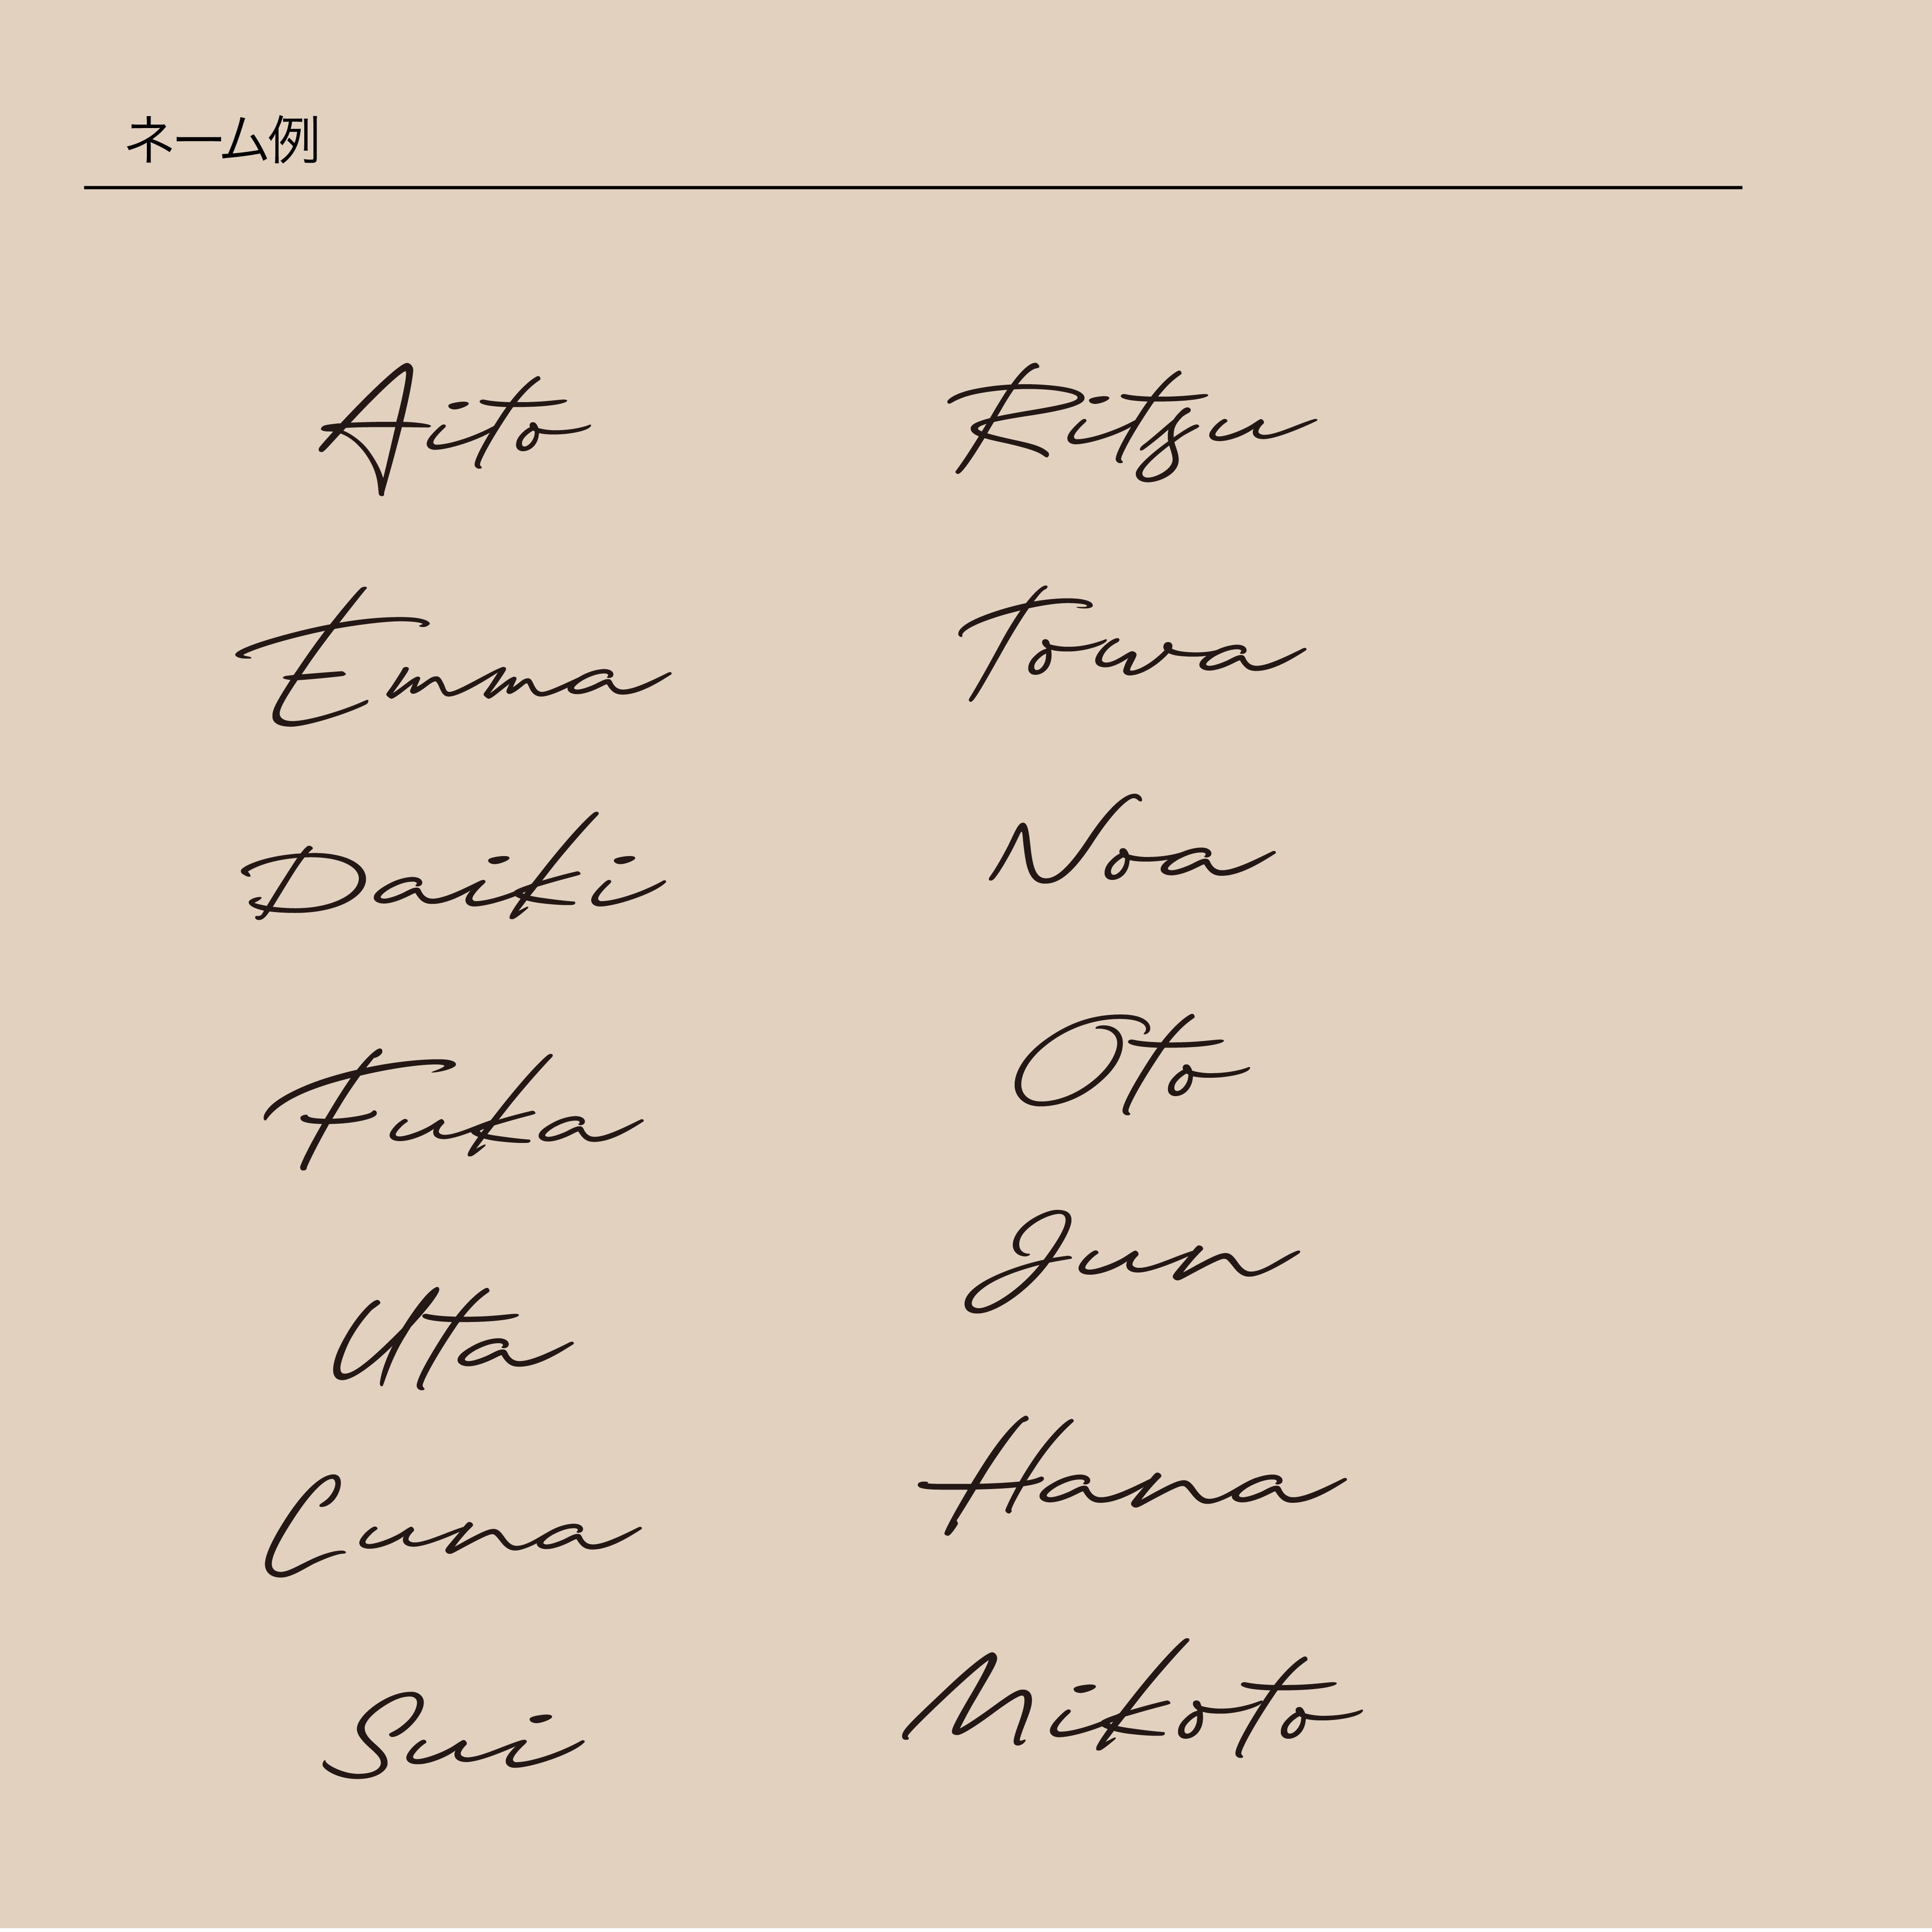 ネーム例
Aito
Emma
Daiki
Fuka
Uta
Luna
Sui
Ritsu
Towa
Noa
Oto
Jun
Hana
Mikoto